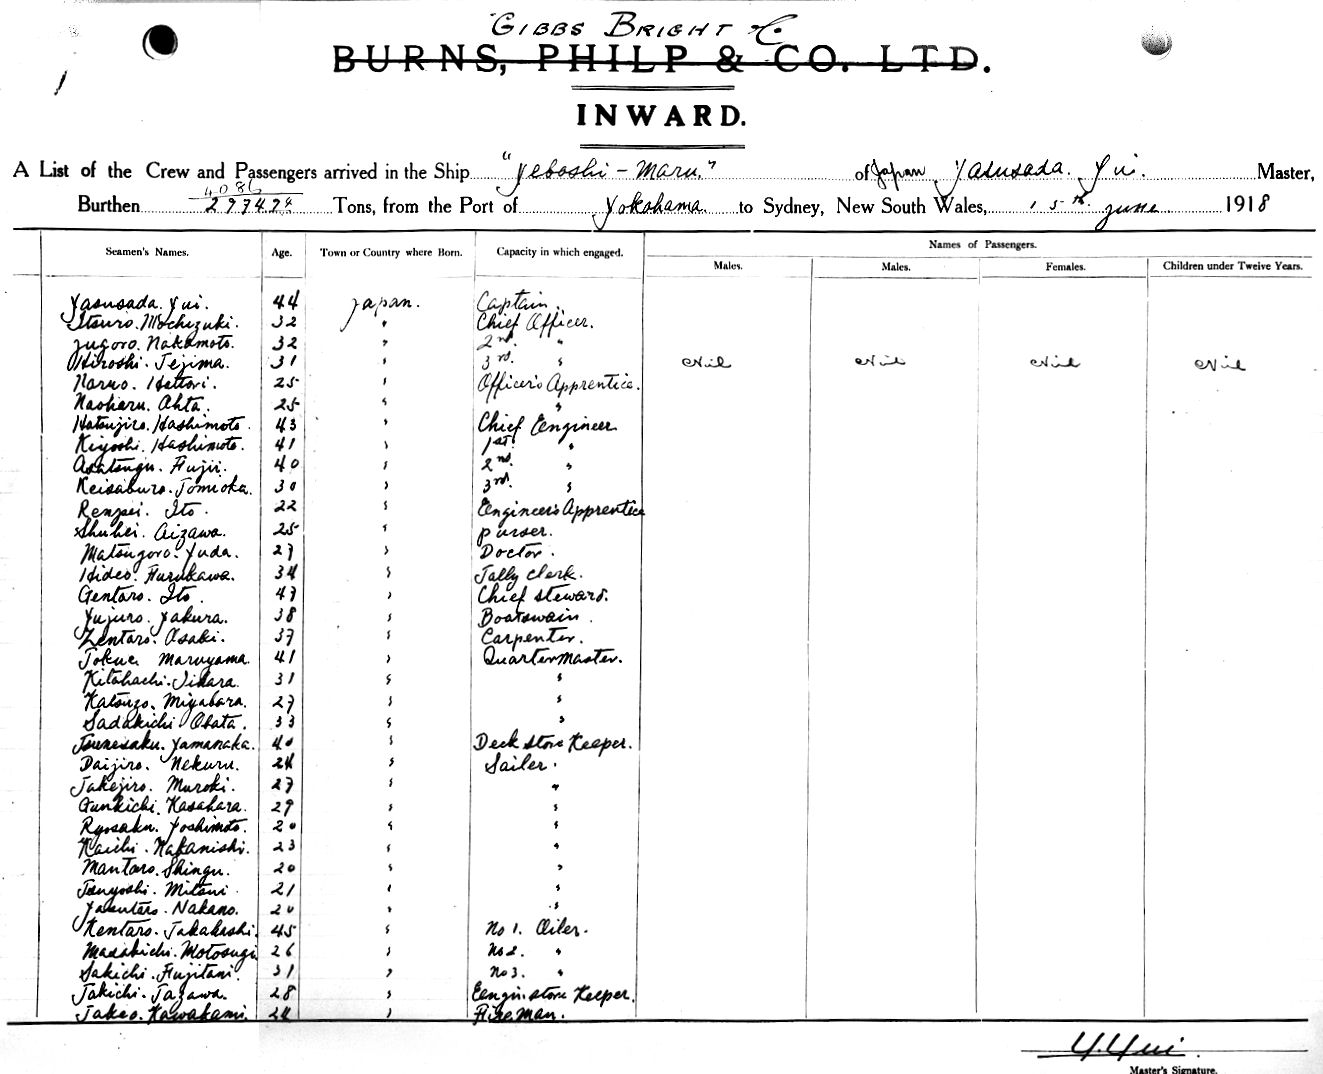 GIBBS BRIGHT & Co.
BURNS, PHILP & CO. LTD.
INWARD.
A List of the Crew and Passengers arrived in the Ship "Yeboshi-Maru," of Japan Yasusada. Yui. Master,
4086
Burthen 2974.74 Tons, from the Port of Yokohama to Sydney, New South Wales, 15th June 1918
Names of Passengers.
Seamen's Names. Age. Town or Country where Born. Capacity in which engaged. Males. Males. Females. Children under Twelve Years.
Yasusada. Yui. 44 Japan. Captain.
Itsuro. Mochizuki. 32 " Chief Officer.
Jugoro. Nakamoto. 32 " 2nd. "
Hiroshi. Tejima. 31 " 3rd. " Nil Nil Nil Nil
Naruo. Hattori. 25 " Officer's Apprentice.
Naoharu. Ohta. 25 " "
Hatsujiro. Hashimoto. 43 " Chief Engineer
Kiyoshi. Hashimoto. 41 " 1st. "
Asatsugu. Fujii. 40 " 2nd. "
Keisaburo. Tomioka. 30 " 3rd. "
Renpei. Ito. 22 " Engineer's Apprentice
Shuhei. Aizawa. 25 " purser.
Matsugoro. Yuda. 27 " Doctor.
Hideo. Furukawa. 34 " Tally clerk.
Gentaro. Ito. 47 " Chief steward.
Yujuro. Yakura. 38 " Boatswain.
Zentaro. Osaki. 37 " Carpenter.
Tokue. Maruyama. 41 " Quartermaster.
Kitahachi. Iihara. 31 " "
Katsuzo. Miyabara. 27 " "
Sadakichi Obata. 33 " "
Tsunesaku. Yamanaka. 40 " Deck store Keeper.
Daijiro. Nekuru. 24 " Sailer.
Takejiro. Muroki. 27 " "
Gunkichi. Kasahara. 29 " "
Ryosaku. Yoshimoto. 20 " "
Kaichi. Nakanishi. 23 " "
Mantaro. Shingu. 20 " "
Tsuyoshi. Mitani. 21 " "
Yasutaro. Nakano. 20 " "
Kentaro. Takahashi. 45 " No 1. Oiler.
Masakichi. Motosugi 26 " No 2. "
Sakichi. Fujitani. 31 " No 3. "
Takichi. Tazawa. 28 " Eengin. store Keeper.
Takeo. Kawakami. 24 " Fire man.
Y. Yui.
Master's Signature.